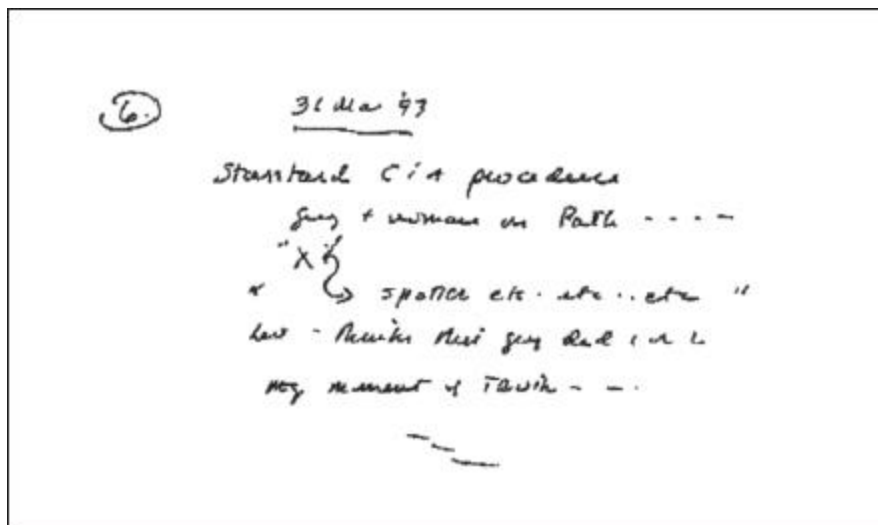 6.
31 Mar '93
Standard CiA procedure
guy + woman on Path - - - -
"X"
spotter etc. etc.. etc "
thinks this guy did
my moment of Truth - - .